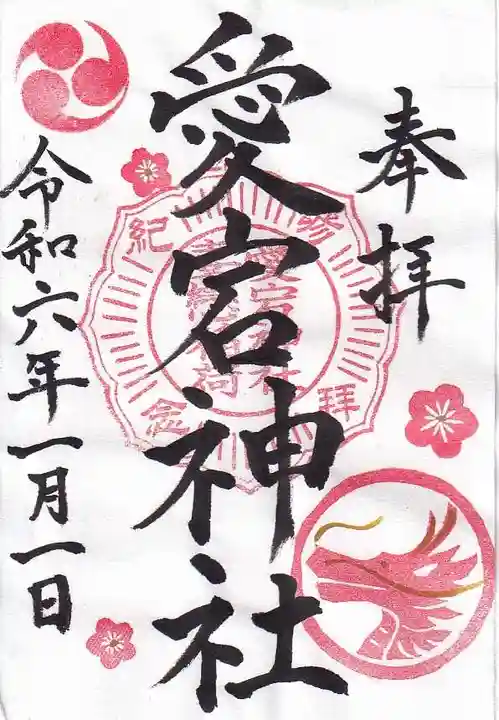 奉拝
愛宕神社
令和六年一月一日
参拝
紀念